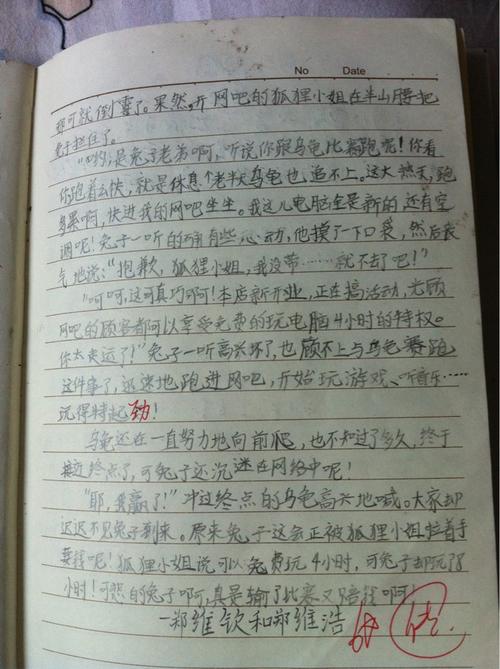 No Date
那可就倒霉了。果然,开网吧的狐狸小姐在半山腰把
兔子拦住了。
"哟,是兔子老弟啊,听说你跟乌龟比赛跑呢!你看
你跑着么快,就是休息个老半天乌龟也追不上。这大热天,跑
多累啊,快进我的网吧坐坐。我这儿电脑全是新的,还有空
调呢!兔子一听的确有些心动,他摸了一下口袋,然后丧
气地说:"抱歉,狐狸小姐,我没带……就不去了吧!"
"呵呵,这可真巧啊!本店新开业,正在搞活动,光顾
网吧的顾客都可以享受免费的玩电脑4小时的特权。
你太走运了!"兔子一听高兴坏了,也顾不上与乌龟赛跑
这件事了,迅速地跑进网吧,开始玩游戏、听音乐……
玩得特起劲!
乌龟还在一直努力地向前爬,也不知过了多久,终于
接近终点了,可兔子还沉迷在网络中呢!
"耶,我赢了!"冲过终点的乌龟高兴地喊。大家却
迟迟不见兔子到来。原来兔子这会正被狐狸小姐拉着手
要钱呢!狐狸小姐说可以免费玩4小时,可兔子却玩了8
小时!可怨的兔子啊,真是输了比赛又赔钱啊!
—郑维钦和郑维浩